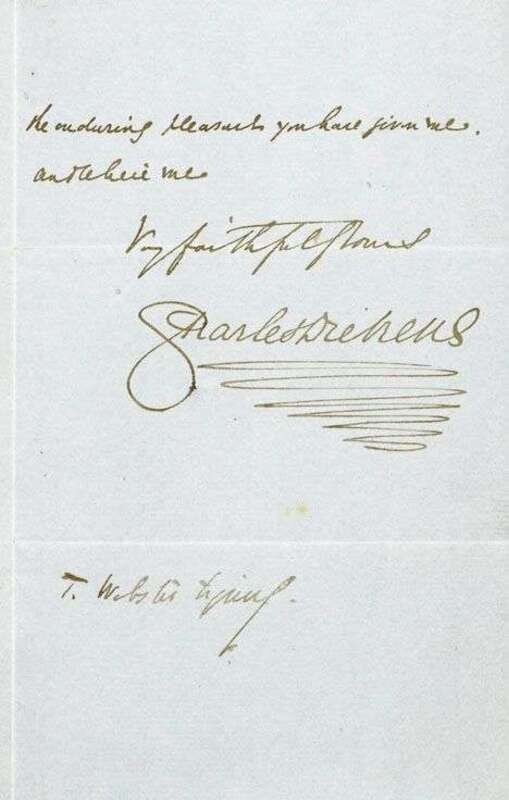 the enduring pleasure you have given me.
and believe me
Very faithfully Yours
Charles Dickens
T. Webster Esquire.